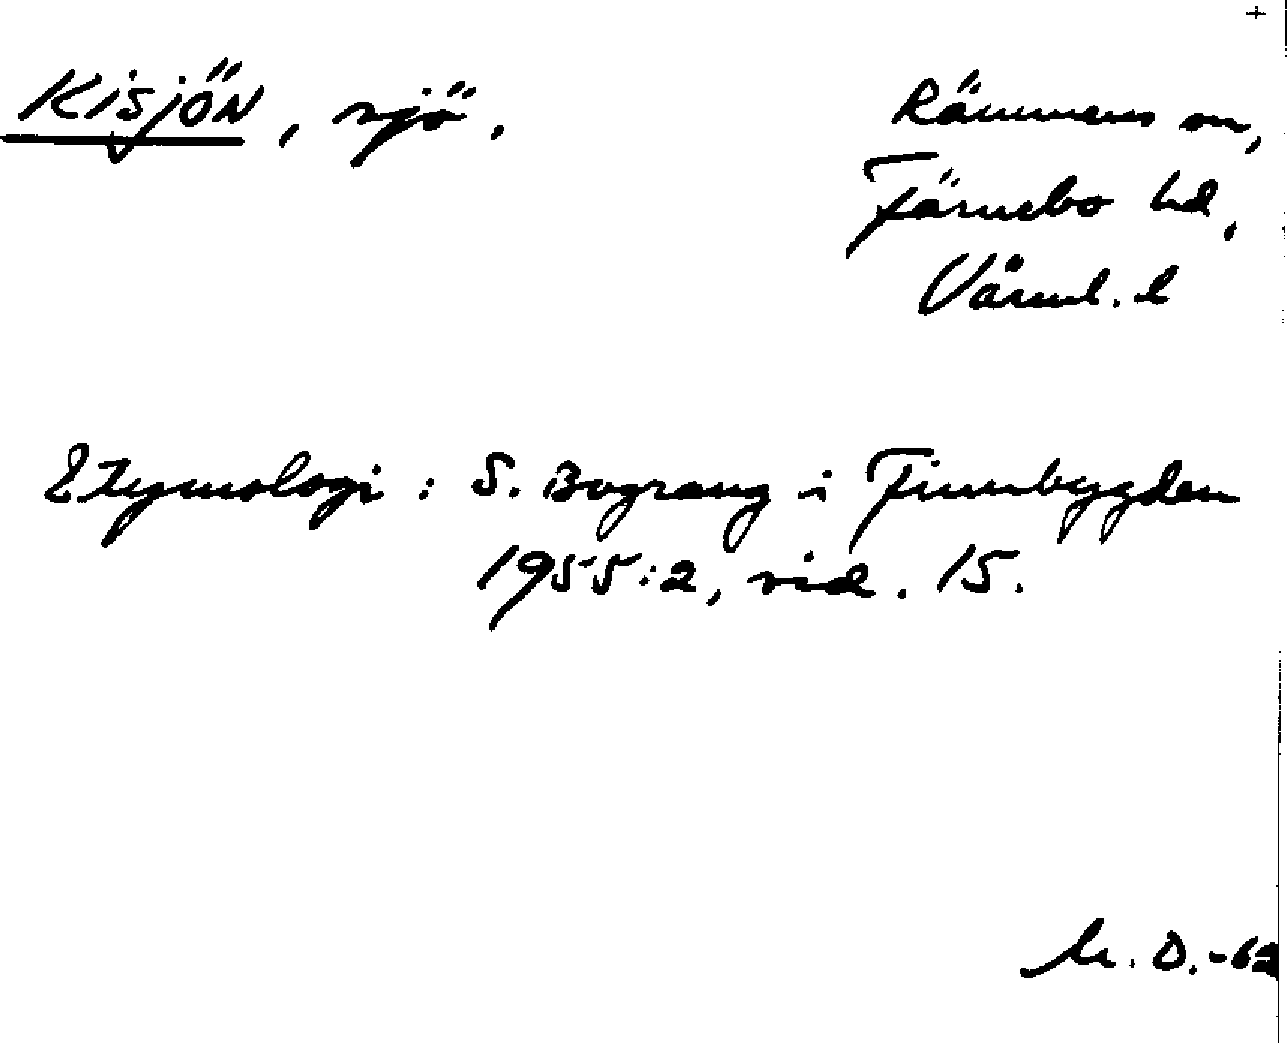 Kisjön, sjö.
Rämmens sn,
Färnebo hd,
Värml. l
Etymologi: S. Bograng i Finnbygden
1955:2, sid. 15.
M. O. -62